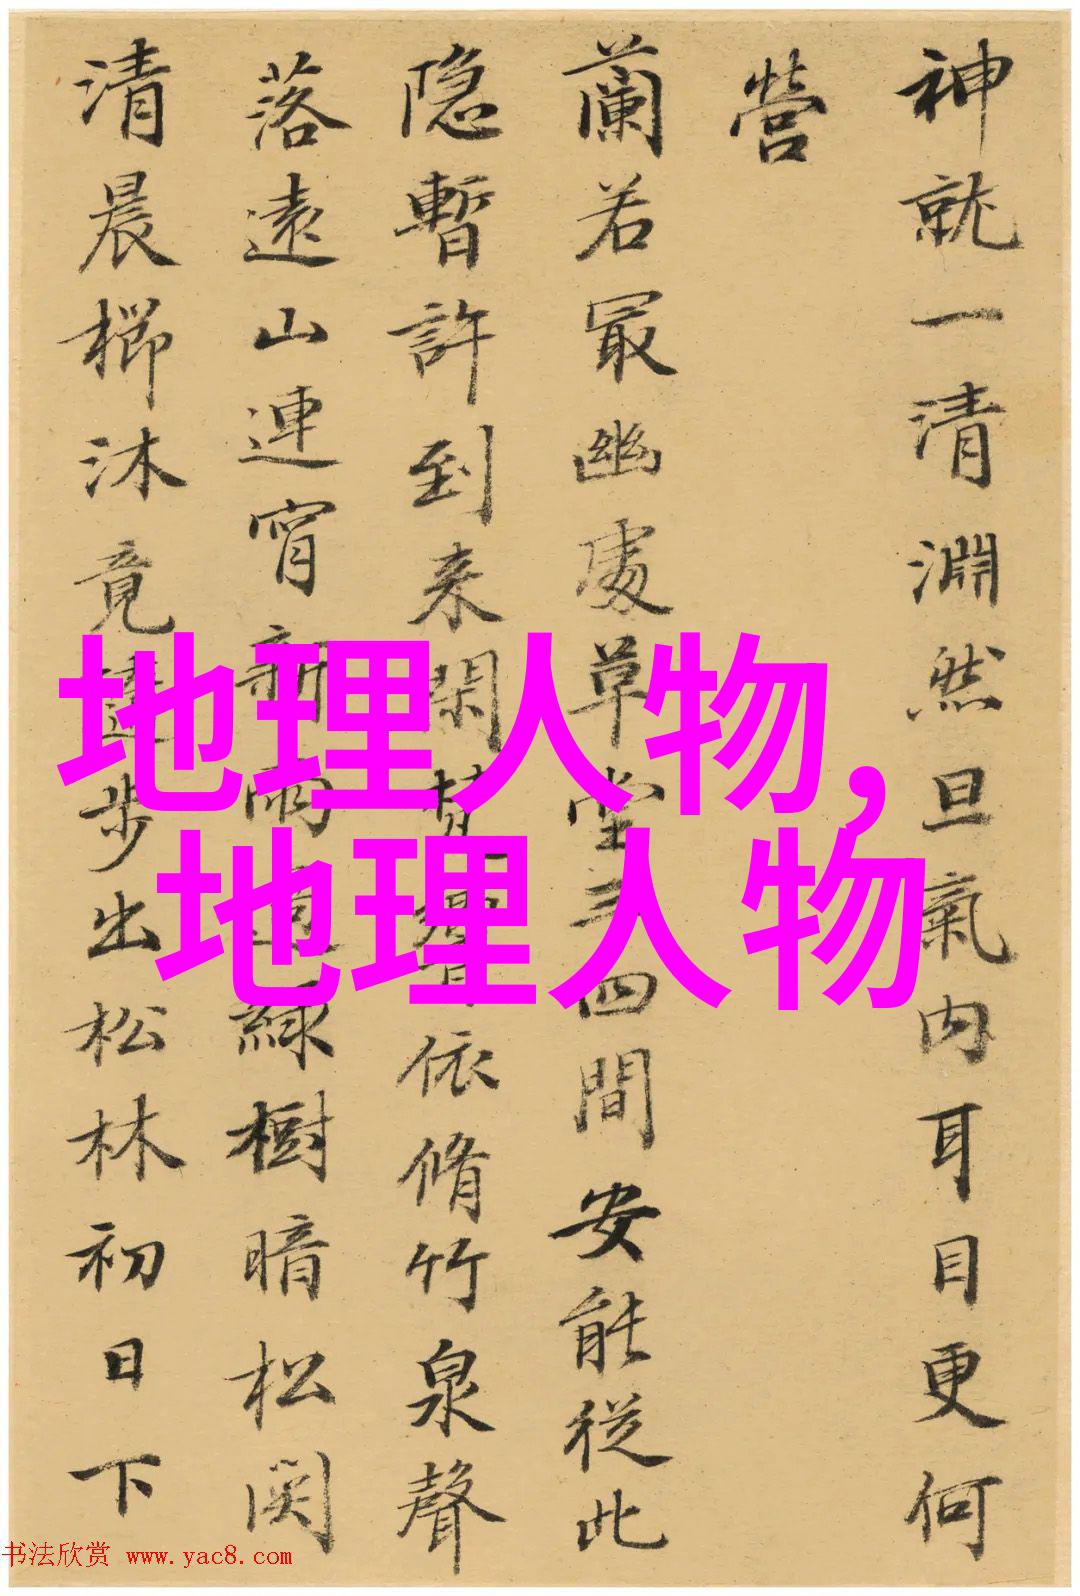 神就一清淵然旦氣内耳目更何
營
蘭若冣幽處草堂三四間安能從此
隐暫許到来閑依脩竹泉聲
落遠山連宵新雨綠樹暗松関
清晨櫛沐竟步出松林初日下
地理人物,
地理人物
书法欣赏 www.yac8.com